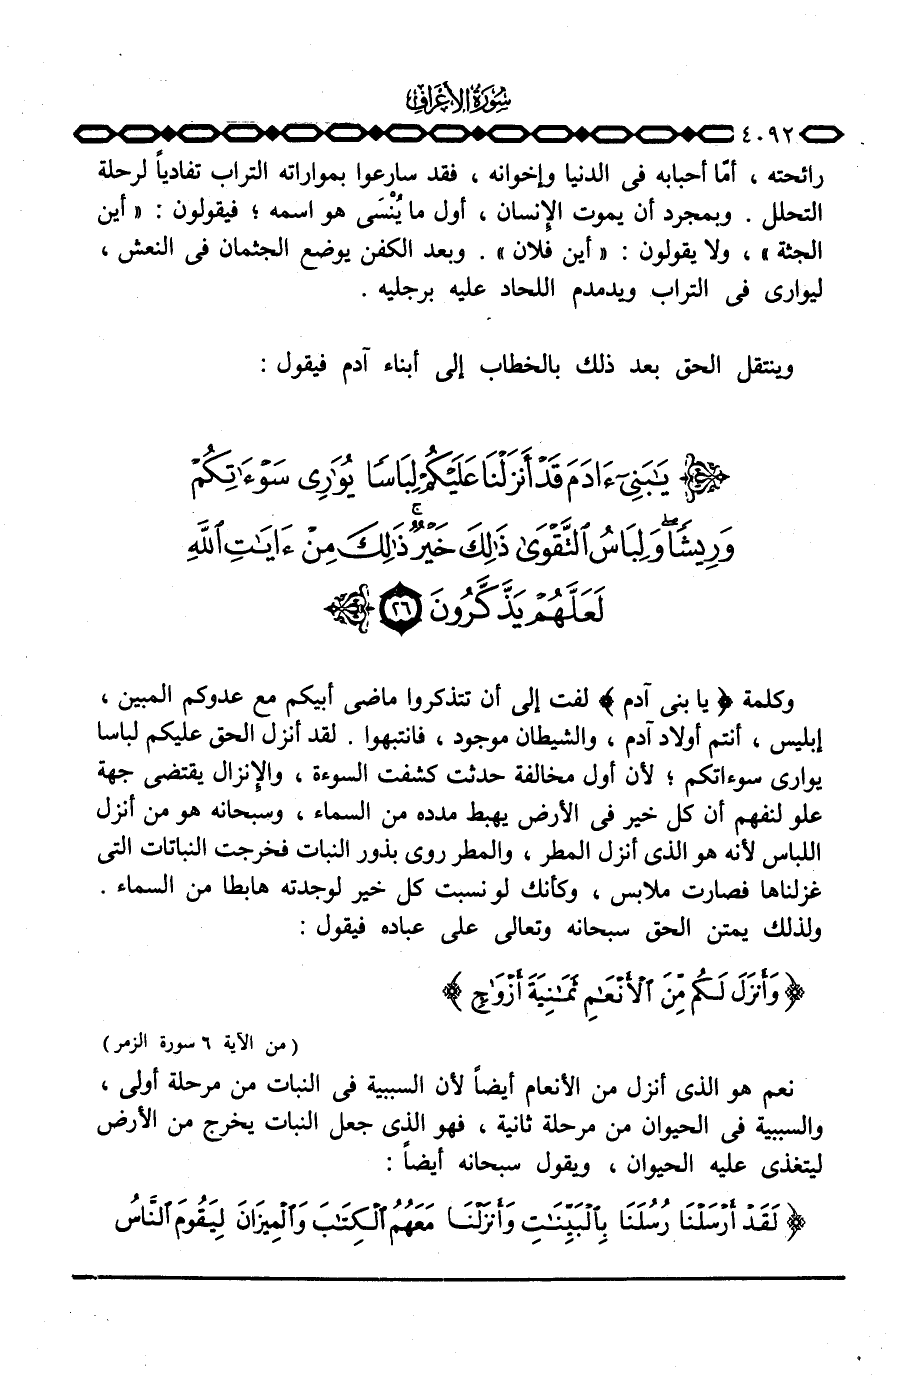 سُورَةُ الأَعْرَافِ
٤٠٩٢
رائحته ، أمّا أحبابه فى الدنيا وإخوانه ، فقد سارعوا بمواراته التراب تفادياً لرحلة
التحلل . وبمجرد أن يموت الإنسان ، أول ما يُنْسَى هو اسمه ؛ فيقولون : « أين
الجثة » ، ولا يقولون : « أين فلان » . وبعد الكفن يوضع الجثمان فى النعش ،
ليوارى فى التراب ويدمدم اللحاد عليه برجليه .
وينتقل الحق بعد ذلك بالخطاب إلى أبناء آدم فيقول :
يَٰبَنِىٓ ءَادَمَ قَدْ أَنزَلْنَا عَلَيْكُمْ لِبَاسًا يُوَٰرِى سَوْءَٰتِكُمْ
وَرِيشًا ۖ وَلِبَاسُ ٱلتَّقْوَىٰ ذَٰلِكَ خَيْرٌ ۚ ذَٰلِكَ مِنْ ءَايَٰتِ ٱللَّهِ
لَعَلَّهُمْ يَذَّكَّرُونَ ٢٦
وكلمة ﴿ يا بنى آدم ﴾ لفت إلى أن تتذكروا ماضى أبيكم مع عدوكم المبين ،
إبليس ، أنتم أولاد آدم ، والشيطان موجود ، فانتبهوا . لقد أنزل الحق عليكم لباسا
يوارى سوءاتكم ؛ لأن أول مخالفة حدثت كشفت السوءة ، والإنزال يقتضى جهة
علو لنفهم أن كل خير فى الأرض يهبط مدده من السماء ، وسبحانه هو من أنزل
اللباس لأنه هو الذى أنزل المطر ، والمطر روى بذور النبات فخرجت النباتات التى
غزلناها فصارت ملابس ، وكأنك لو نسبت كل خير لوجدته هابطا من السماء .
ولذلك يمتن الحق سبحانه وتعالى على عباده فيقول :
﴿ وَأَنزَلَ لَكُم مِّنَ ٱلْأَنْعَٰمِ ثَمَٰنِيَةَ أَزْوَٰجٍ ﴾
( من الآية ٦ سورة الزمر )
نعم هو الذى أنزل من الأنعام أيضاً لأن السببية فى النبات من مرحلة أولى ،
والسببية فى الحيوان من مرحلة ثانية ، فهو الذى جعل النبات يخرج من الأرض
ليتغذى عليه الحيوان ، ويقول سبحانه أيضاً :
﴿ لَقَدْ أَرْسَلْنَا رُسُلَنَا بِٱلْبَيِّنَٰتِ وَأَنزَلْنَا مَعَهُمُ ٱلْكِتَٰبَ وَٱلْمِيزَانَ لِيَقُومَ ٱلنَّاسُ